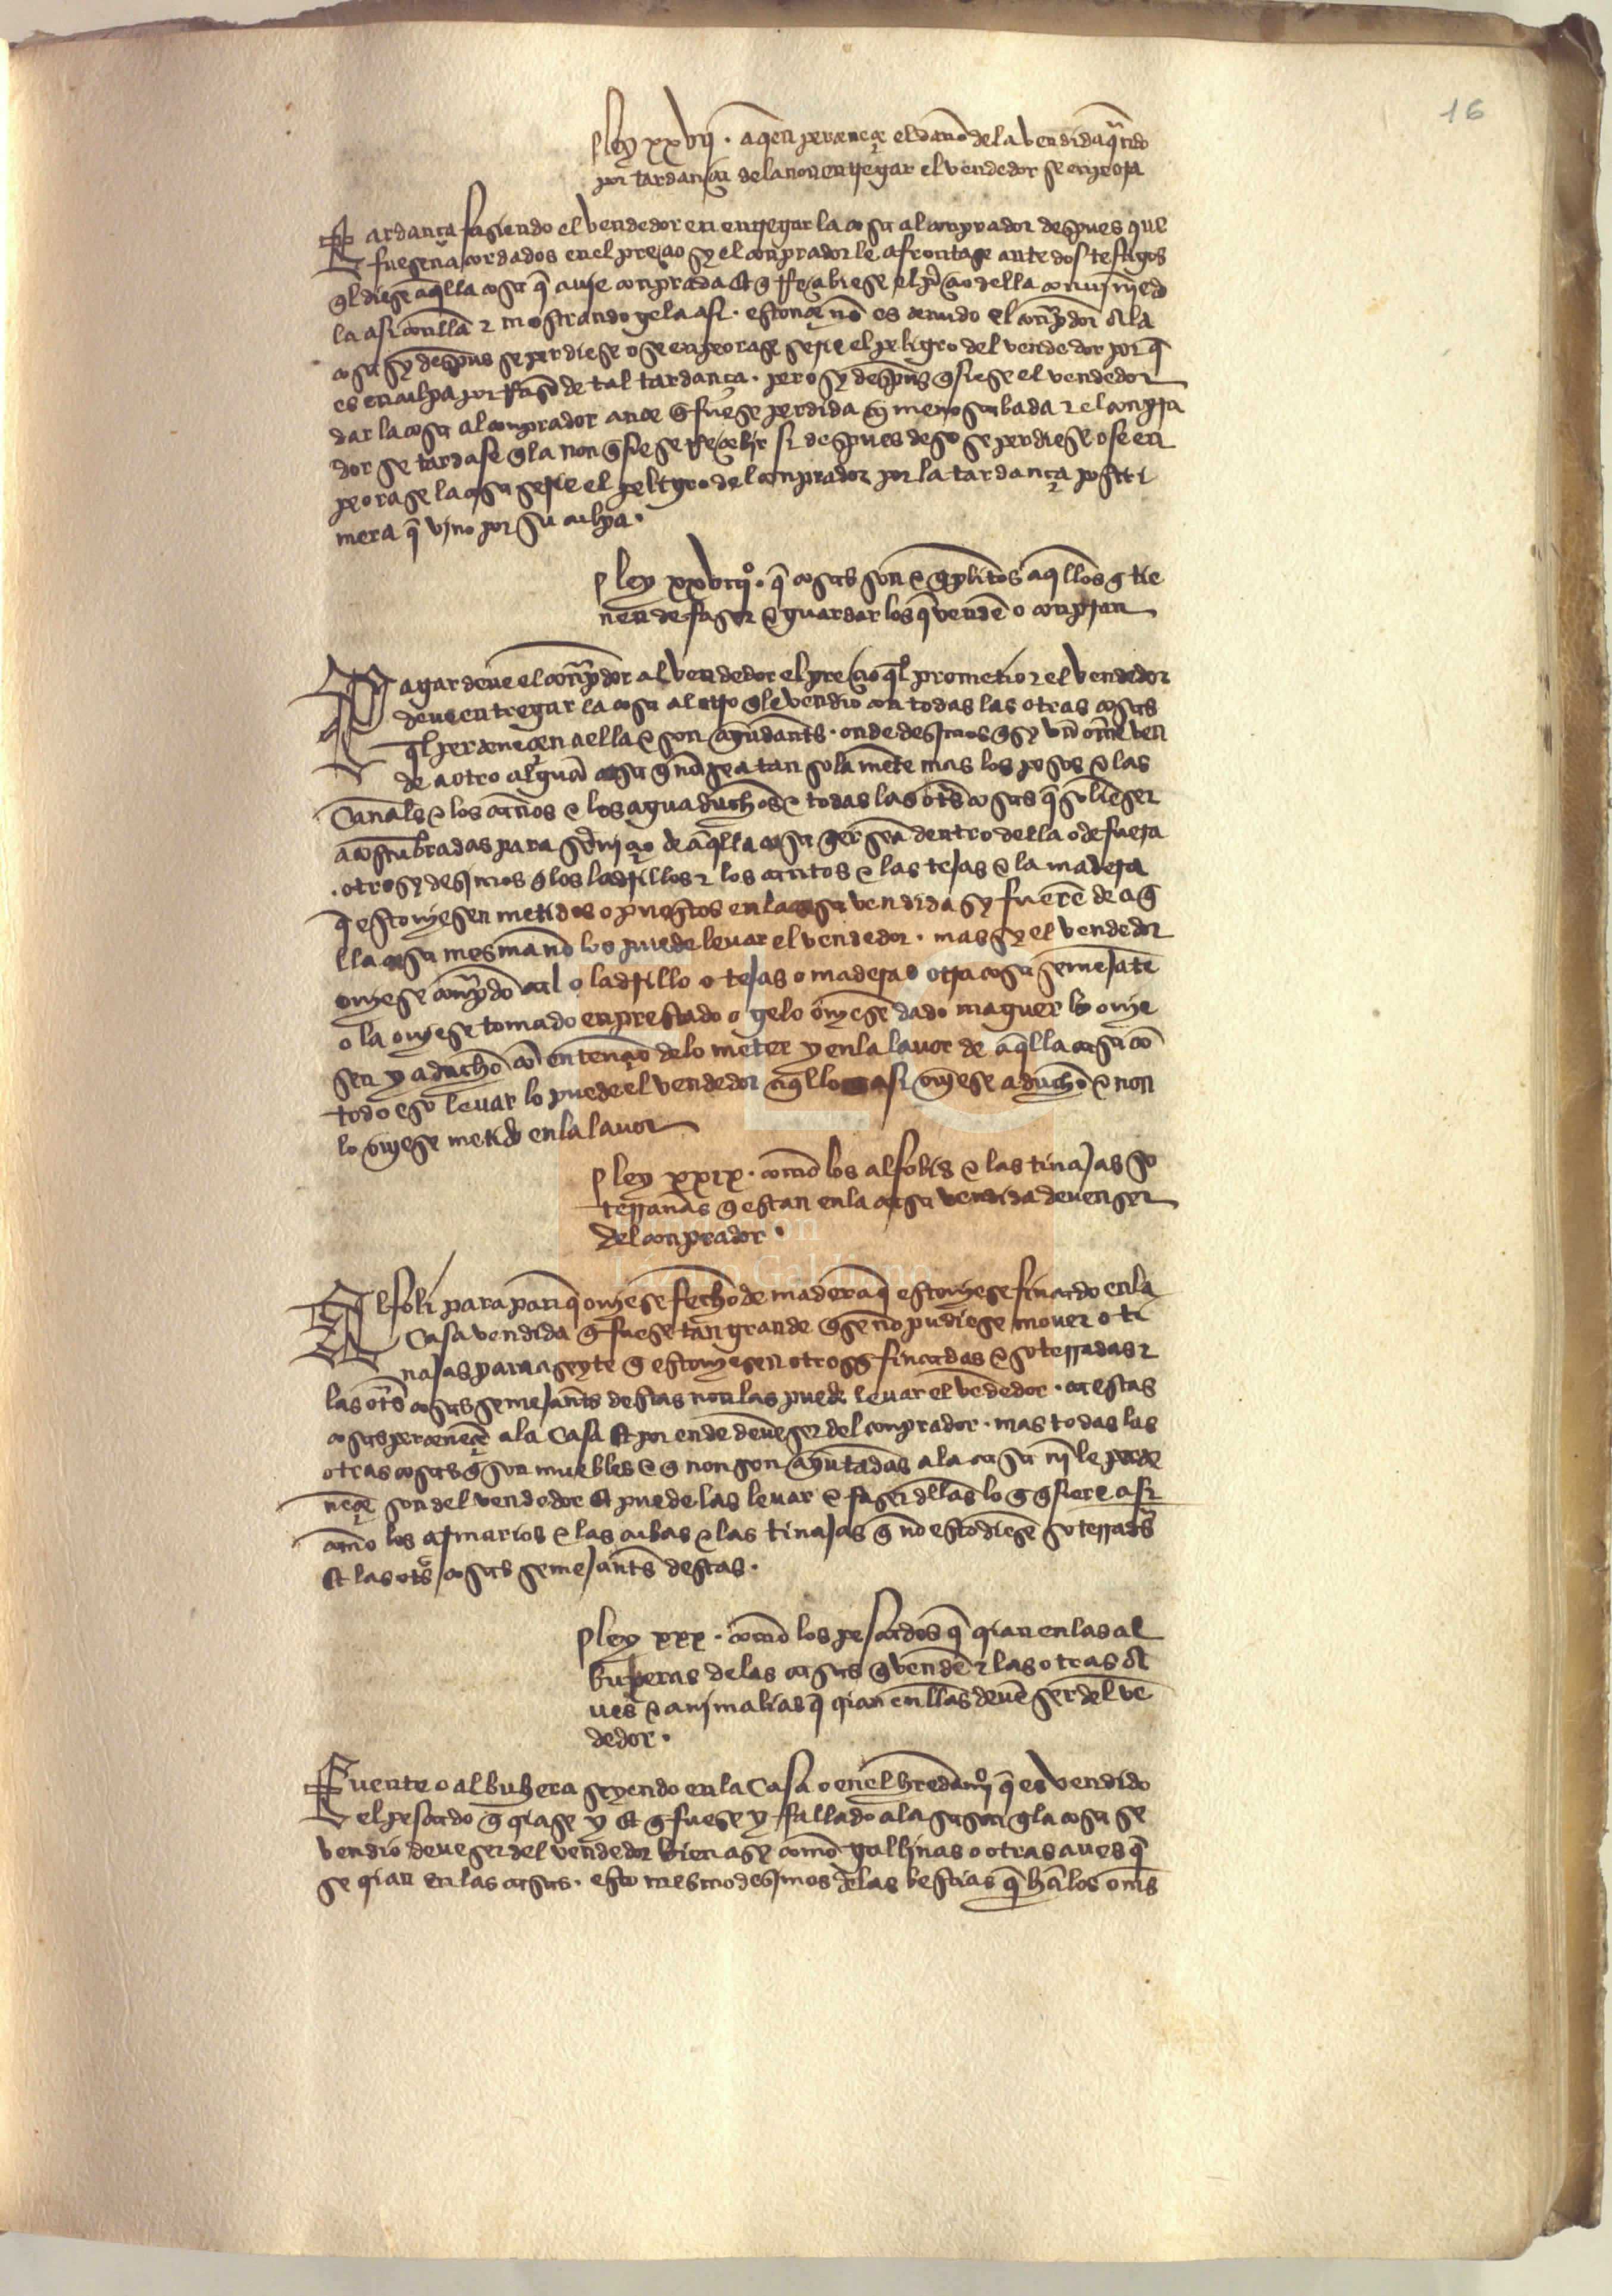 16
ley xxvij . a qen perteneçe el daño de la vendida qndo
por tardança de la non entregar el vendedor se enpeora
Tardança fasiendo el vendedor en entregar la cosa al conprador despues que
fuesen acordados en el preçio sy el conprador le afrontase ante dos testigos
ql diese aqlla cosa q avie conprada et q rreçibiese el pçio della
la asi con ella τ mostrandogela asi . estonçe no es tenudo el conpdor
cosa sy despues se perdiese o se enpeorase serie el peligro del vendedor por q
es en culpa por rrason de tal tardança . pero sy despues qsiese el vendedor
dar la cosa al conprador ante q fuese perdida ny menoscabada τ el conpra
dor se tardase q la non qsiese rreçebir si despues deso se perdiese o se en
peorase la cosa serie el peligro del conprador por la tardança postri
mera q vino por su culpa .
ley xxviijº . q cosas son τ aqllos q tie
nen de faser τ guardar los q venden o conpran
Pagar deve el conpdor al vendedor el preçio ql prometio τ el vendedor
deve entregar la cosa al otro q le vendio con todas las otras cosas
ql perteneçen a ella τ son ayudants . onde desimos q sy vn ome ven
de a otro alguna casa q no sea tan sola mente mas los posos τ las
Canals τ los caños τ los aguaduchos τ todas las ots cosas q solien ser
acostunbradas para sviçio de aqlla casa qer sean dentro della o de fuera
. otrosy desimos q los ladrillos τ los cantos τ las tejas τ la madera
q estoviesen metidos o puestos en la casa vendida sy fueren de aq
lla casa mesma no los puede levar el vendedor . mas sy el vendedor
oviese conpdo cal o ladrillo o tejas o madera o otra cosa semejate
o la oviese tomado enprestado o gelo oviese dado maguer lo ovie
sen y aducho co entençio de lo meter y en la lavor de aqlla casa co
todo eso levar lo puede el vendedor aqllo asi oviese aducho τ non
lo oviese metido en la lavor
ley xxix . como los alfolis τ las tinajas so
terranas q estan en la casa vendida deven ser
del conprador .
Alfoli para pan q oviese fecho de madera q estoviese fincado en la
Casa vendida q fuese tan grande q se no pudiese mover o ti
najas para aseyte q estoviesen otrosy fincadas τ soterradas τ
las ots cosas semejants destas non las puede levar el vendedor . ca estas
cosas perteneçe a la Casa et por ende deve ser del conprador . mas todas las
otras cosas q son muebles τ q non son ayuntadas a la casa ni le perte
neçe son del vendedor et puede las levar τ faser dellas lo q qsiere asi
como los armarios τ las cubas τ las tinajas q no estodiese soterrads
et las ots cosas semejants destas .
ley xxx . como los pescados q crian en las al
buheras de las casas q vende τ las otras a
ves τ animalias q crian en llas deve ser del ve
dedor .
Fuente o albuhera seyendo en la Casa o en el hredamiº q es vendido
el pescado q criase y et q fuese y fallado a la sason q la cosa se
vendio deve ser del vendedor bien asy como gallinas o otras aves q
se crian en las casas . esto mesmo desimos de las bestias q han los oms